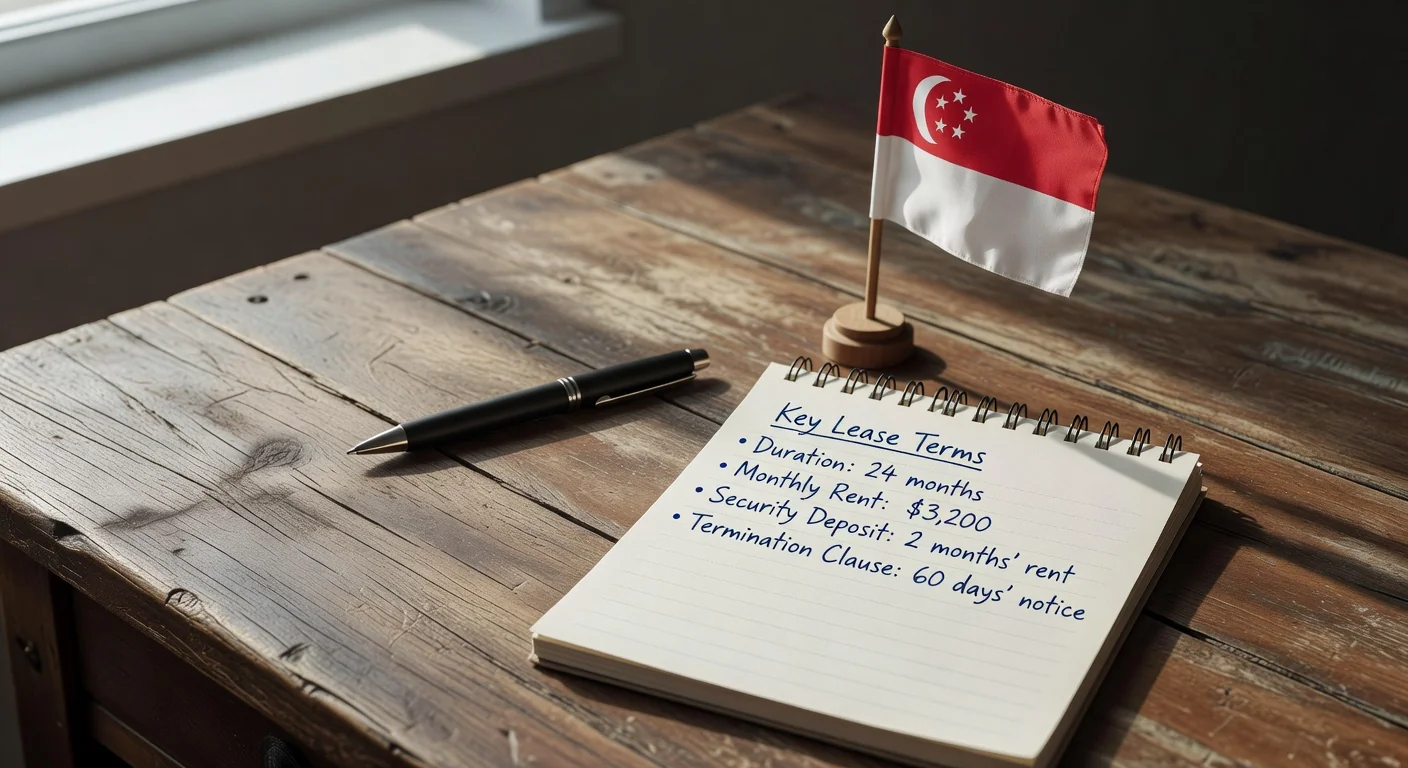 Key Lease Terms
• Duration: 24 months
• Monthly Rent: $3,200
• Security Deposit: 2 months' rent
• Termination Clause: 60 days' notice